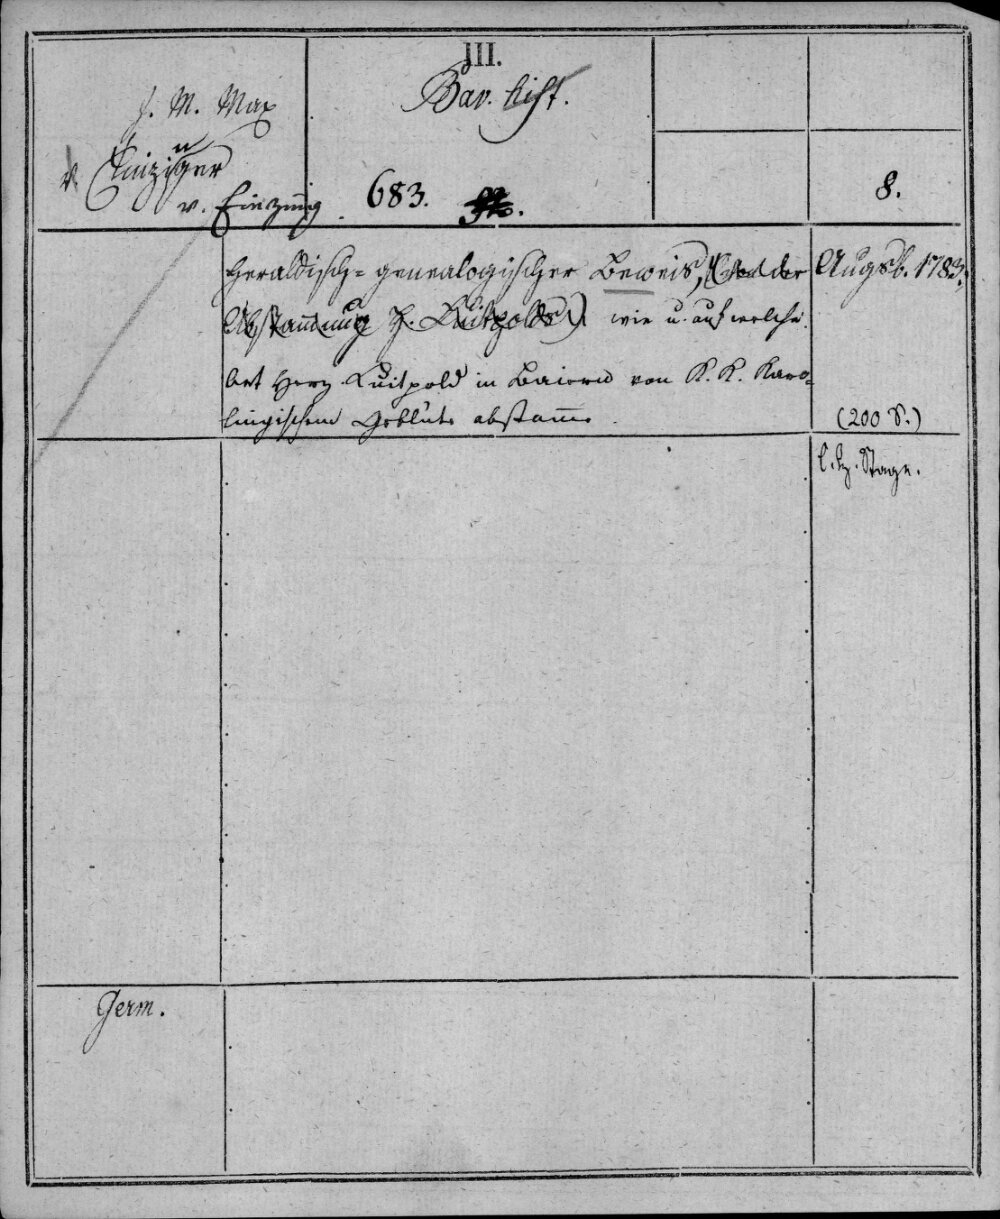 III.
Bav. hist.
J. M. Max
v. Einziger
n
v. Einzing
683.
8.
Heraldisch-genealogischer Beweis, (der
Abstammung H. Luitpolds) wie u. auf welche
Art Herz. Luitpold in Baiern von K. K. Karo-
lingischem Geblüte abstame.
Augsb. 1783.
(200 S.)
b. Stage.
Germ.